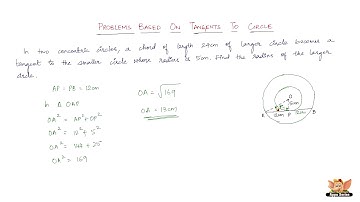 PROBLEMS BASED ON TANGENTS TO CIRCLE
In two concentric circles, a chord of length 24cm of larger circle becomes a
tangent to the smaller circle whose radius is 5cm. Find the radius of the larger
circle.
AP = PB = 12cm
In Δ OAP
OA² = AP² + OP²
OA² = 12² + 5²
OA² = 144 + 25
OA² = 169
OA = √169
OA = 13cm
O
5cm
A 12cm P 12cm B